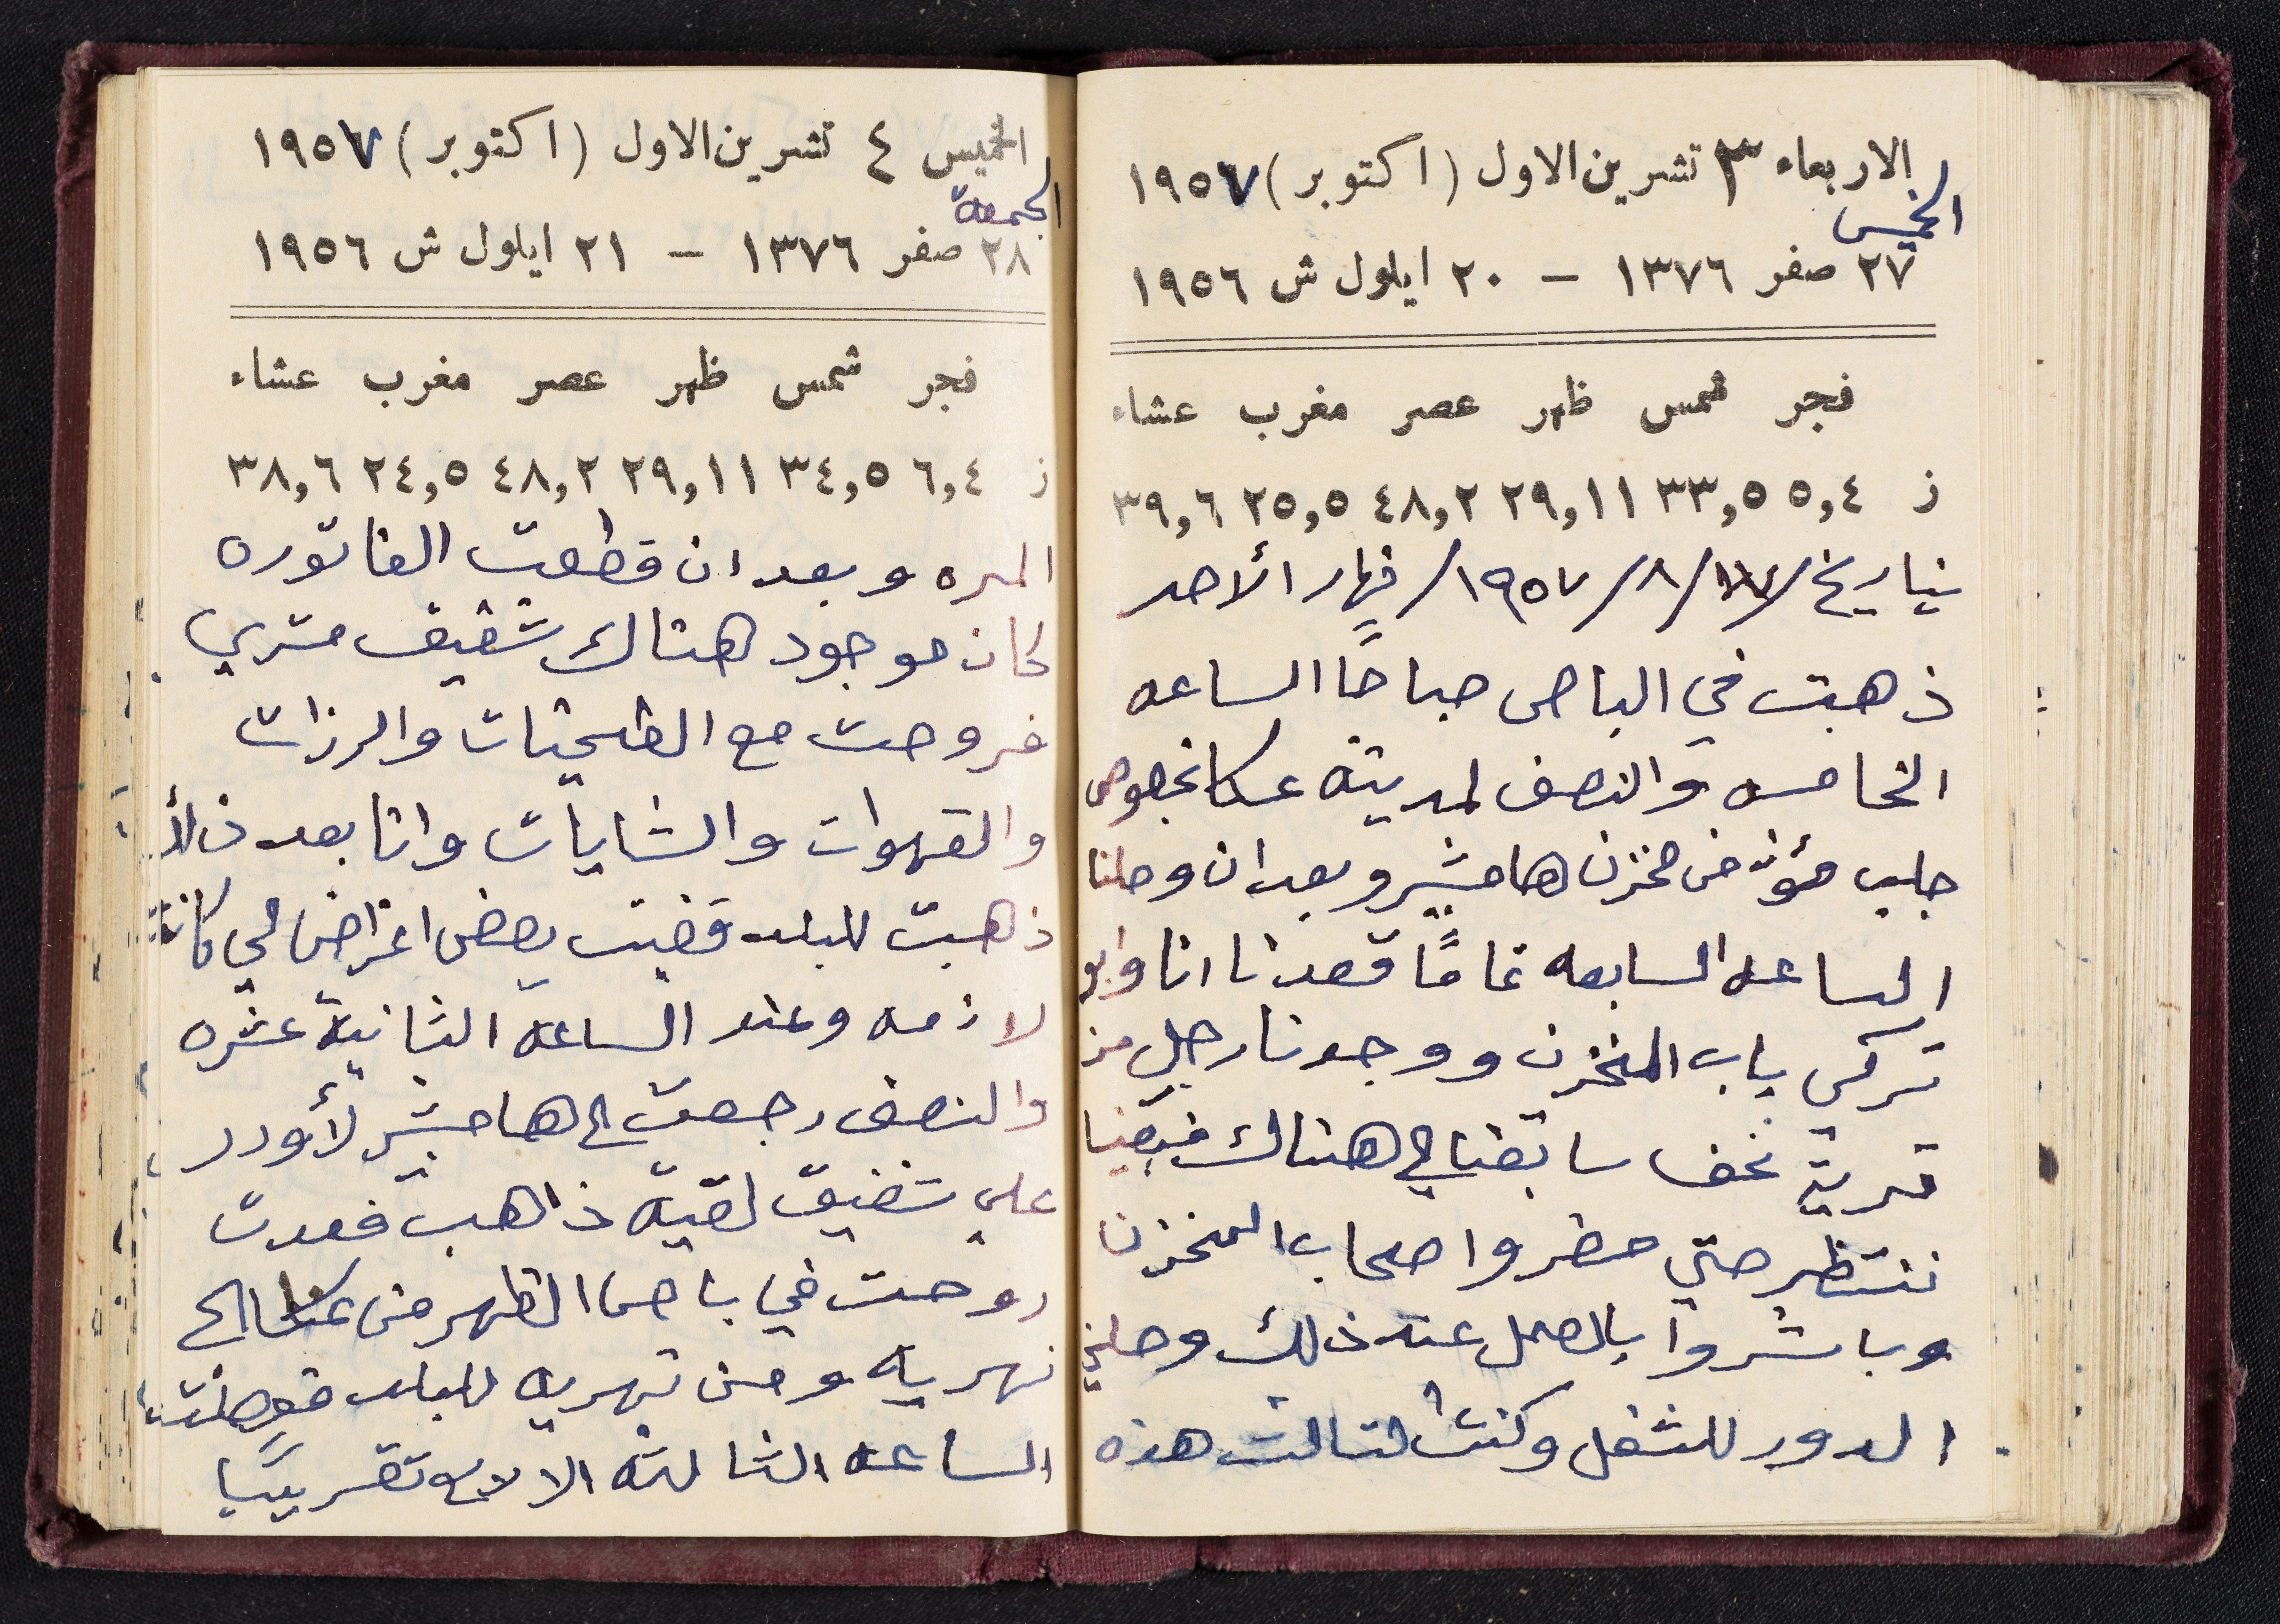 الاربعاء ٣ تشرين الاول (اكتوبر) ١٩٥٧
الخميس
٢٧ صفر ١٣٧٦ – ٢٠ ايلول ش ١٩٥٦
فجر شمس ظهر عصر مغرب عشاء
ز ٥,٤ ٣٣,٥ ٢٩,١١ ٤٨,٢ ٢٥,٥ ٣٩,٦
بتاريخ /١٨/ ٨/ ١٩٥٧/ نهار الأحد
ذهبت في الباص صباحًا الساعه
الخامسه والنصف لمدينة عكا بخصوص
جلب مؤن من مخزن هامشبير وبعد ان وصلنا
الساعه السابعه تمامًا قعدنا انا وابو
تركي بباب المخزن ووجدنا رجل من
قرية نحف سابقنا الى هناك فبقينا
ننتظر حتى حضروا اصحاب المخزن
وباشروا بالعمل عند ذلك وصلني
الدور للشغل وكنت لتالت هذه
الخميس ٤ تشرين الاول (اكتوبر) ١٩٥٧
الجمعة
٢٨ صفر ١٣٧٦ – ٢١ ايلول ش ١٩٥٦
فجر شمس ظهر عصر مغرب عشاء
ز ٦,٤ ٣٤,٥ ٢٩,١١ ٤٨,٢ ٢٤,٥ ٣٨,٦
المره وبعد ان قطعت الفاتوره
كان موجود هناك شفيق متري
فروحت مع الطحينات والرزات
والقهوات والشايات وانا بعد ذلك
ذهبت للبلد قضيت بعض اغراض لي كانت
لازمه وعند الساعه الثانية عشره
والنصف رجعت الى هامشبير لأدور
على شفيق لقيته ذاهب فعدت
روحت في باص الظهر من عكا الى
نهريه ومن نهريه للبلد فوصلت
الساعه الثالثه الا ربع تقريبًا